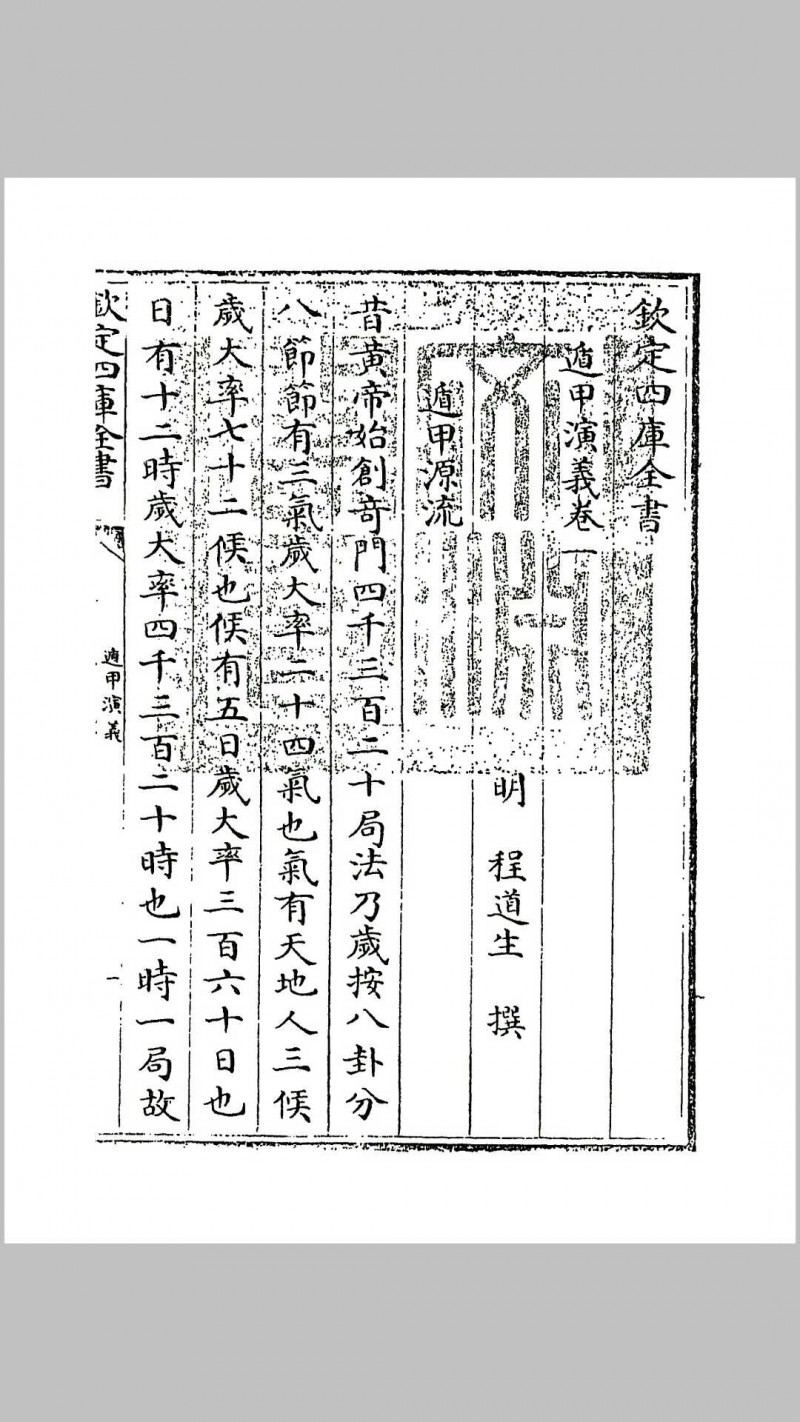 欽定四庫全書
遁甲演義卷一
明　程道生　撰
遁甲源流
昔黃帝始創奇門四千三百二十局法乃歲按八卦分
八節節有三氣歲大率二十四氣也氣有天地人三候
歲大率七十二候也候有五日歲大率三百六十日也
日有十二時歲大率四千三百二十時也一時一局故
欽定四庫全書
遁甲演義
一